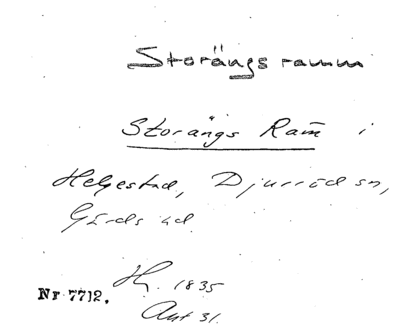 Storängsramm
Storängs Ram̄ i
Helgestad, Djurröd sn,
Gärds hd.
Hg. 1835
Nr 7712.
Akt 31.